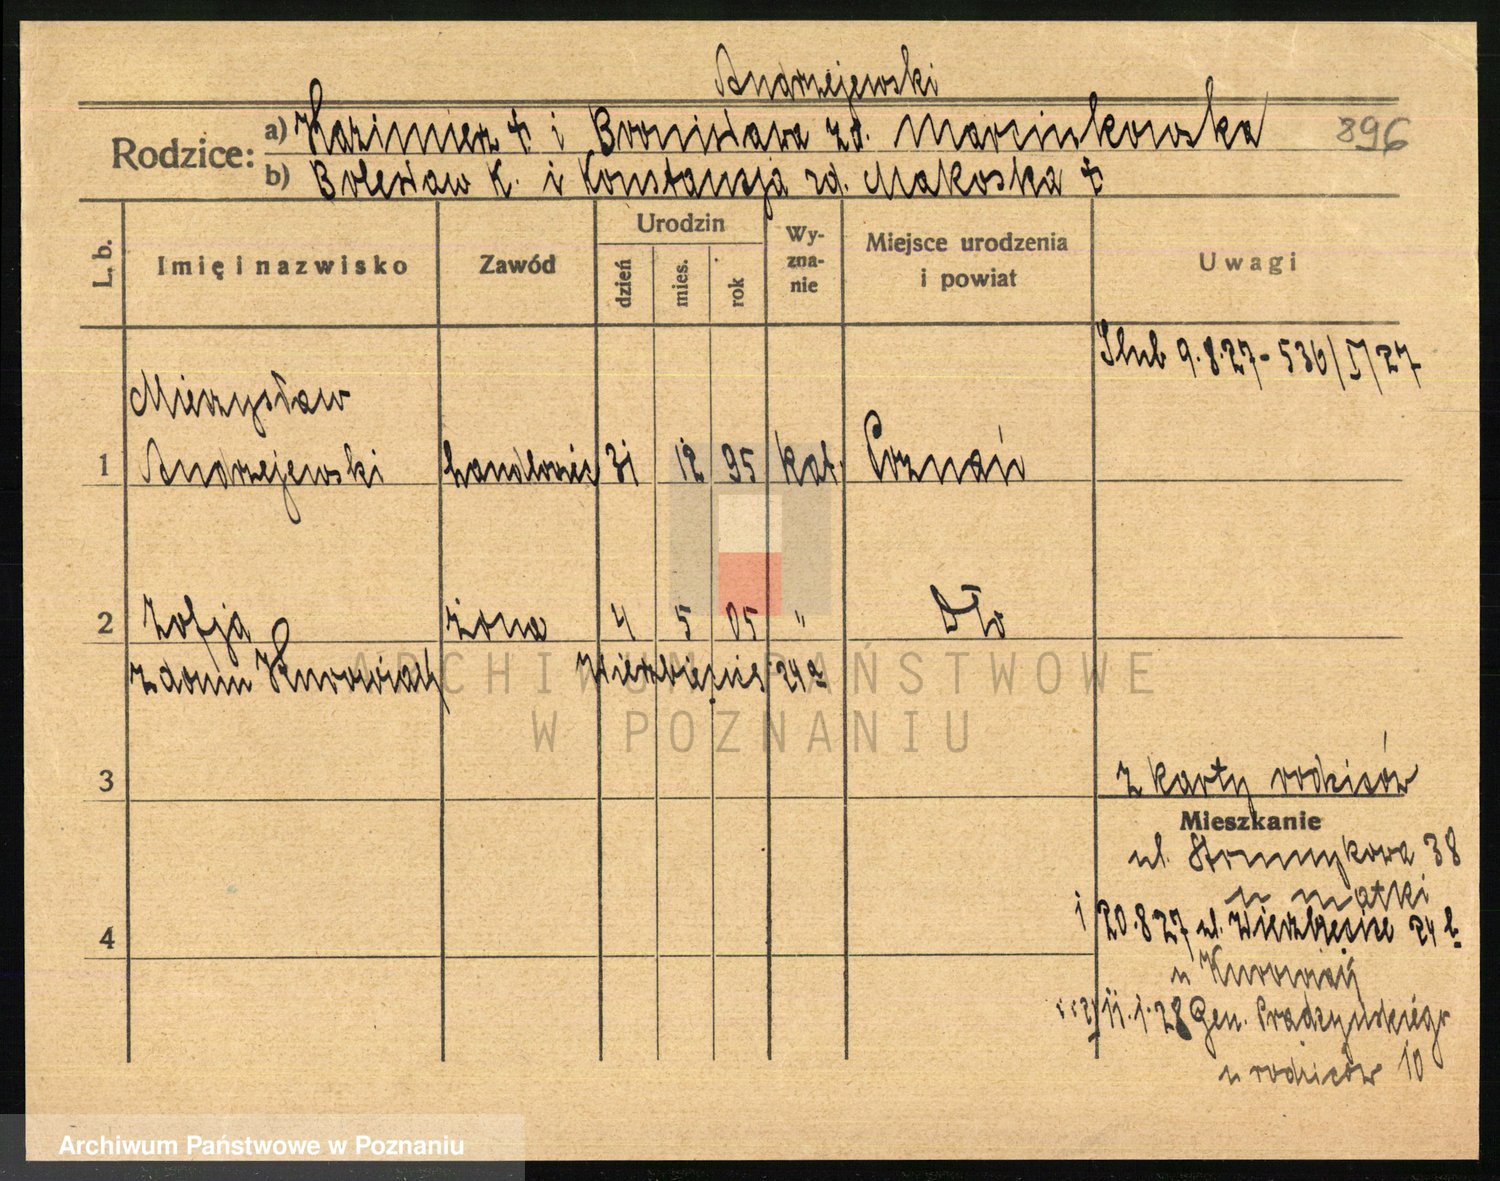 Andrzejewski
Rodzice: a) Kazimierz + i Bronisława zd. Marcinkowska 896
b) Bolesław K. i Konstancja zd. Makoska +
L. b. Imię i nazwisko Zawód Urodzin dzień mies. rok Wy-zna-nie Miejsce urodzenia i powiat Uwagi
Ślub 9.8.27 - 536/I/27
Mieczysław
1 Andrzejewski handlowiec 31 12 95 kat. Poznań
2 Zofja żona 4 5 05 " dto
z domu Wierzbięcice 24a
ARCHIWUM PAŃSTWOWE
W POZNANIU
3 z karty rodziców
Mieszkanie
ul. Strumykowa 38
u matki
4 i 20.8.27 ul. Wierzbięcice 24
u
11.1.28 Gen. Prądzyńskiego
u rodziców 10
Archiwum Państwowe w Poznaniu